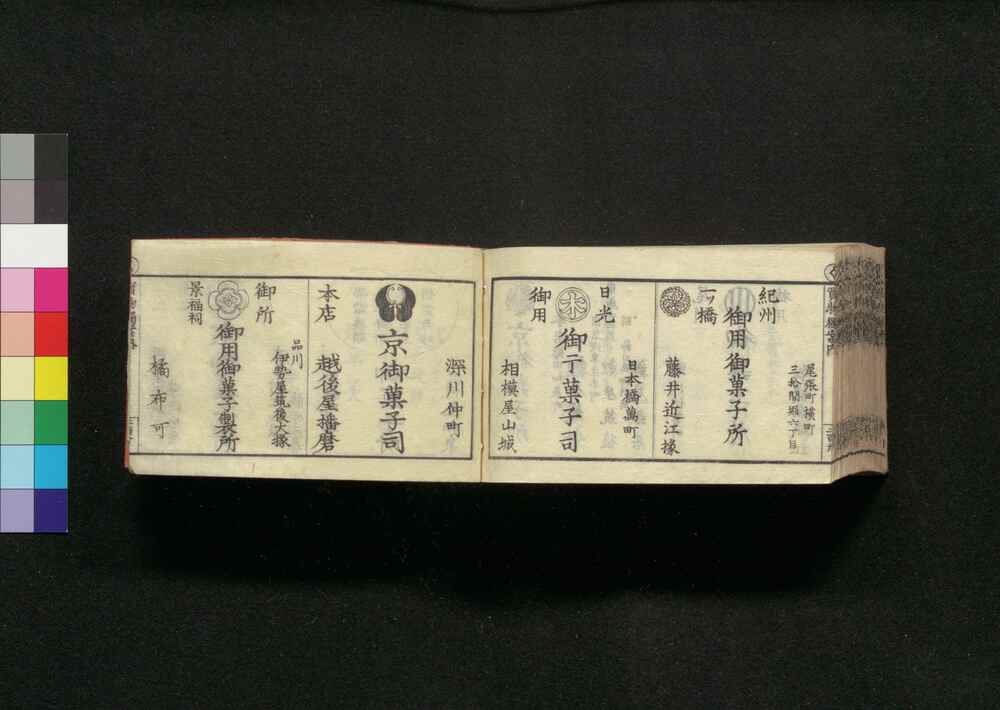 尾張町横町
紀州
一ッ橋
御用御菓子所
藤井近江掾
日本橋萬町
日光
御用
木
御干菓子司
相模屋山城
深川仲町
京御菓子司
本店
越後屋播磨
品川
伊勢屋筑後大掾
御所
御用御菓子製所
景福祠
橘布可